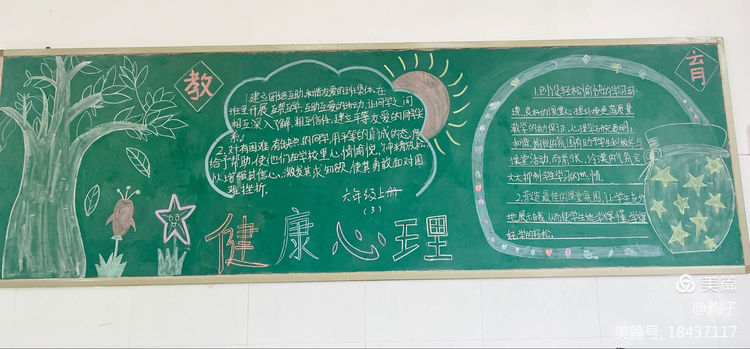 教
育
1.建立团结互助,和谐友爱的班集体。在
班里开展互帮互学、互助互爱的活动,让同学之间
相互深入了解,相互信任,建立平等友爱的同学关
系。
2.对有困难、有缺点的同学,用平等的真诚的态度
给予帮助,使他们在学校里心情愉悦,
以增强其信心,激发其求知欲,使其勇敢面对困
难挫折。
六年级上册
(3)
健康心理
1.创设轻松愉快的学习环
境,良好的课堂心理环境是高质量
教学的
和谐、愉快的氛围有助于学生积极参与
课堂活动,而紧张、冷漠的气氛会
大大抑制学生学习的热情。
2.营造最佳的课堂氛围,让学生充分
地展示自我,从而使学生
好学的轻松。
美篇
@陶子
美篇号: 18437117